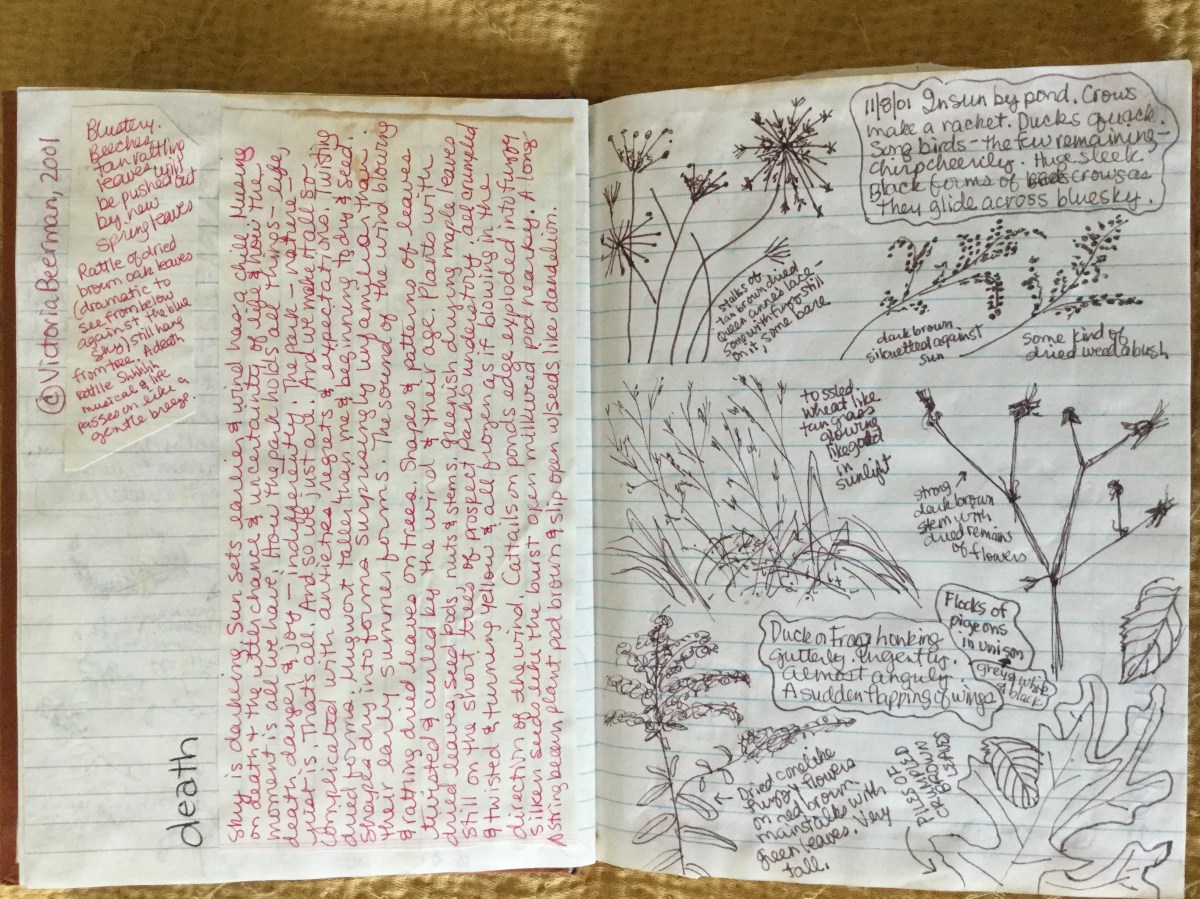 ©VictoriaBeerman, 2001
Blustery.
Beeches
tan rattling
leaves will
be pushed out
by new
spring leaves
Rattle of dried
brown oak leaves
(dramatic to
see from below
against the blue
sky) still hang
from tree. A death
rattle Shhhhh
musical & life
passes on like a
gentle breeze.
death
Sky is darkening. Sun sets earlier & wind has a chill. Musing
on death & the utter chance & uncertainty of life & how the
moment is all we have. How the park holds all things - life,
death, danger & joy - indifferently. The park - nature -
just is. Thats all. And so we just are. And we make it all so
complicated with anxieties, regrets & expectations. Twisting
dried forms. Mugwort taller than me & beginning to dry & seed.
Shapes dry into forms surprisingly than
their early summer forms. The sound of the wind blowing
& rattling dried leaves on trees. Shapes & patterns of leaves
twisted & curled by the wind & their age. Plants with
dried leaves, seed pods, nuts & stems. greenish drying maple leaves
still on the short trees of prospect Park's understory, all crumpled
& twisted & turning yellow & all frozen as if blowing in the
direction of the wind. Cattails on ponds edge exploded into fuzzy
silken seeds like the burst open milkweed pod nearby. A long
string been plant pod brown & slip open w/seeds like dandelion.
11/8/01 In sun by pond. Crows
make a racket. Ducks quack.
Song birds - the few remaining -
chirp cheerily. Huge sleek
Black forms of crows as
they glide across blue sky.
stalks of
tan brown dried
Queen annes lace -
some with fur po still
on it, some bare
dark brown
silouetted against
sun
some kind of
dried weed a bush
tossled
wheat like
tan grass
glowing
like gold
in
sunlight
strong
dark brown
stem with
dried remains
of flowers
Flocks of
pigeons
in unison
grey & white
& black
Duck or Frog honking
gutterly. Urgently.
Almost angrily
A sudden flapping of wings
Dried cone like
fuzzy flowers
on red brown
main stalks with
green leaves. Very
tall.
PILES OF
CRUMPLED
BROWN
LEAVES